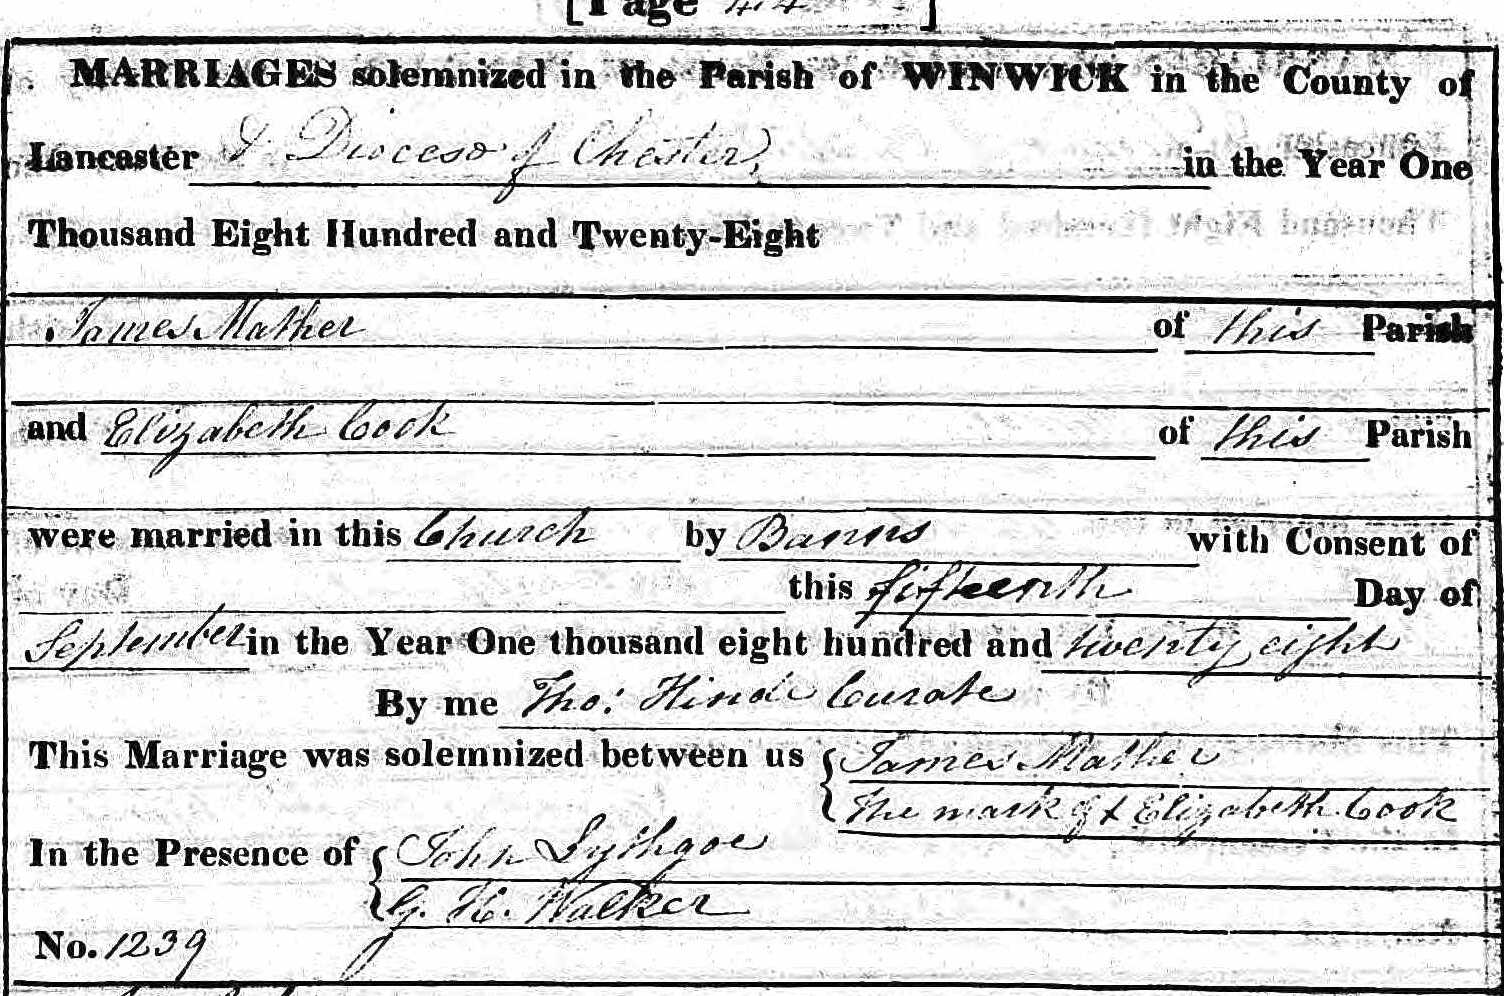 [Page 414]
MARRIAGES solemnized in the Parish of WINWICK in the County of
Lancaster & Diocese of Chester, in the Year One
Thousand Eight Hundred and Twenty-Eight
James Mather of this Parish
and Elizabeth Cook of this Parish
were married in this Church by Banns with Consent of
this fifteenth Day of
September in the Year One thousand eight hundred and twenty eight
By me Tho: Hinde Curate
This Marriage was solemnized between us { James Mather
The mark of x Elizabeth Cook
In the Presence of { John Lythgoe
G. H. Walker
No. 1239